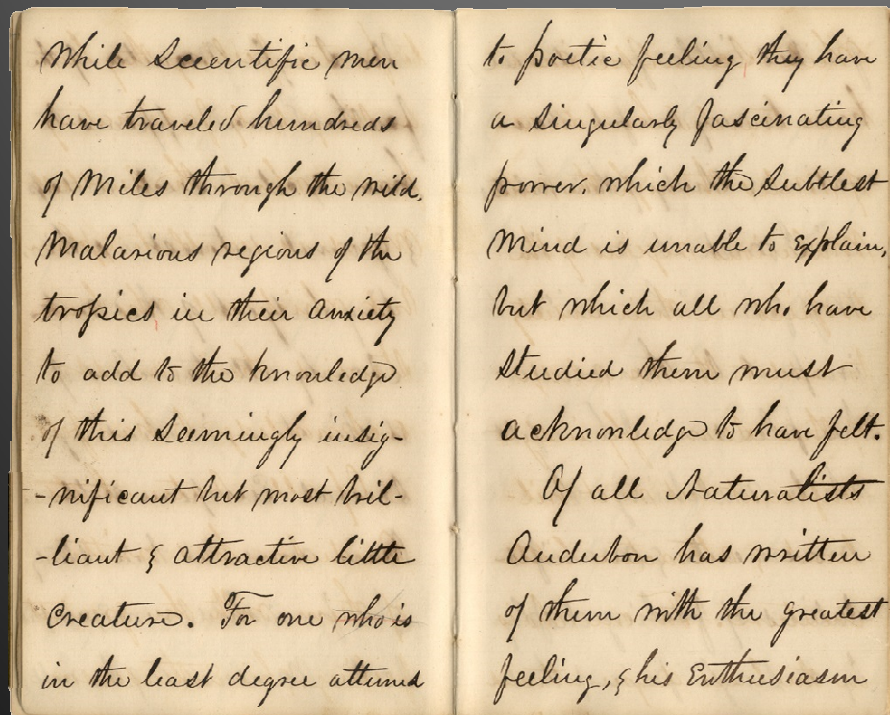 While Scientific men
have traveled hundreds
of Miles through the wild,
Malarious regions of the
tropics in their Anxiety
to add to the knowledge
of this seemingly insig-
-nificant but most bril-
-liant & attractive little
Creature. For one who is
in the least degree attuned
to poetic feeling they have
a singularly fascinating
power, which the subtlest
Mind is unable to explain,
but which all who have
studied them must
acknowledge to have felt.
Of all Naturalists
Audubon has written
of them with the greatest
feeling, & his Enthusiasm